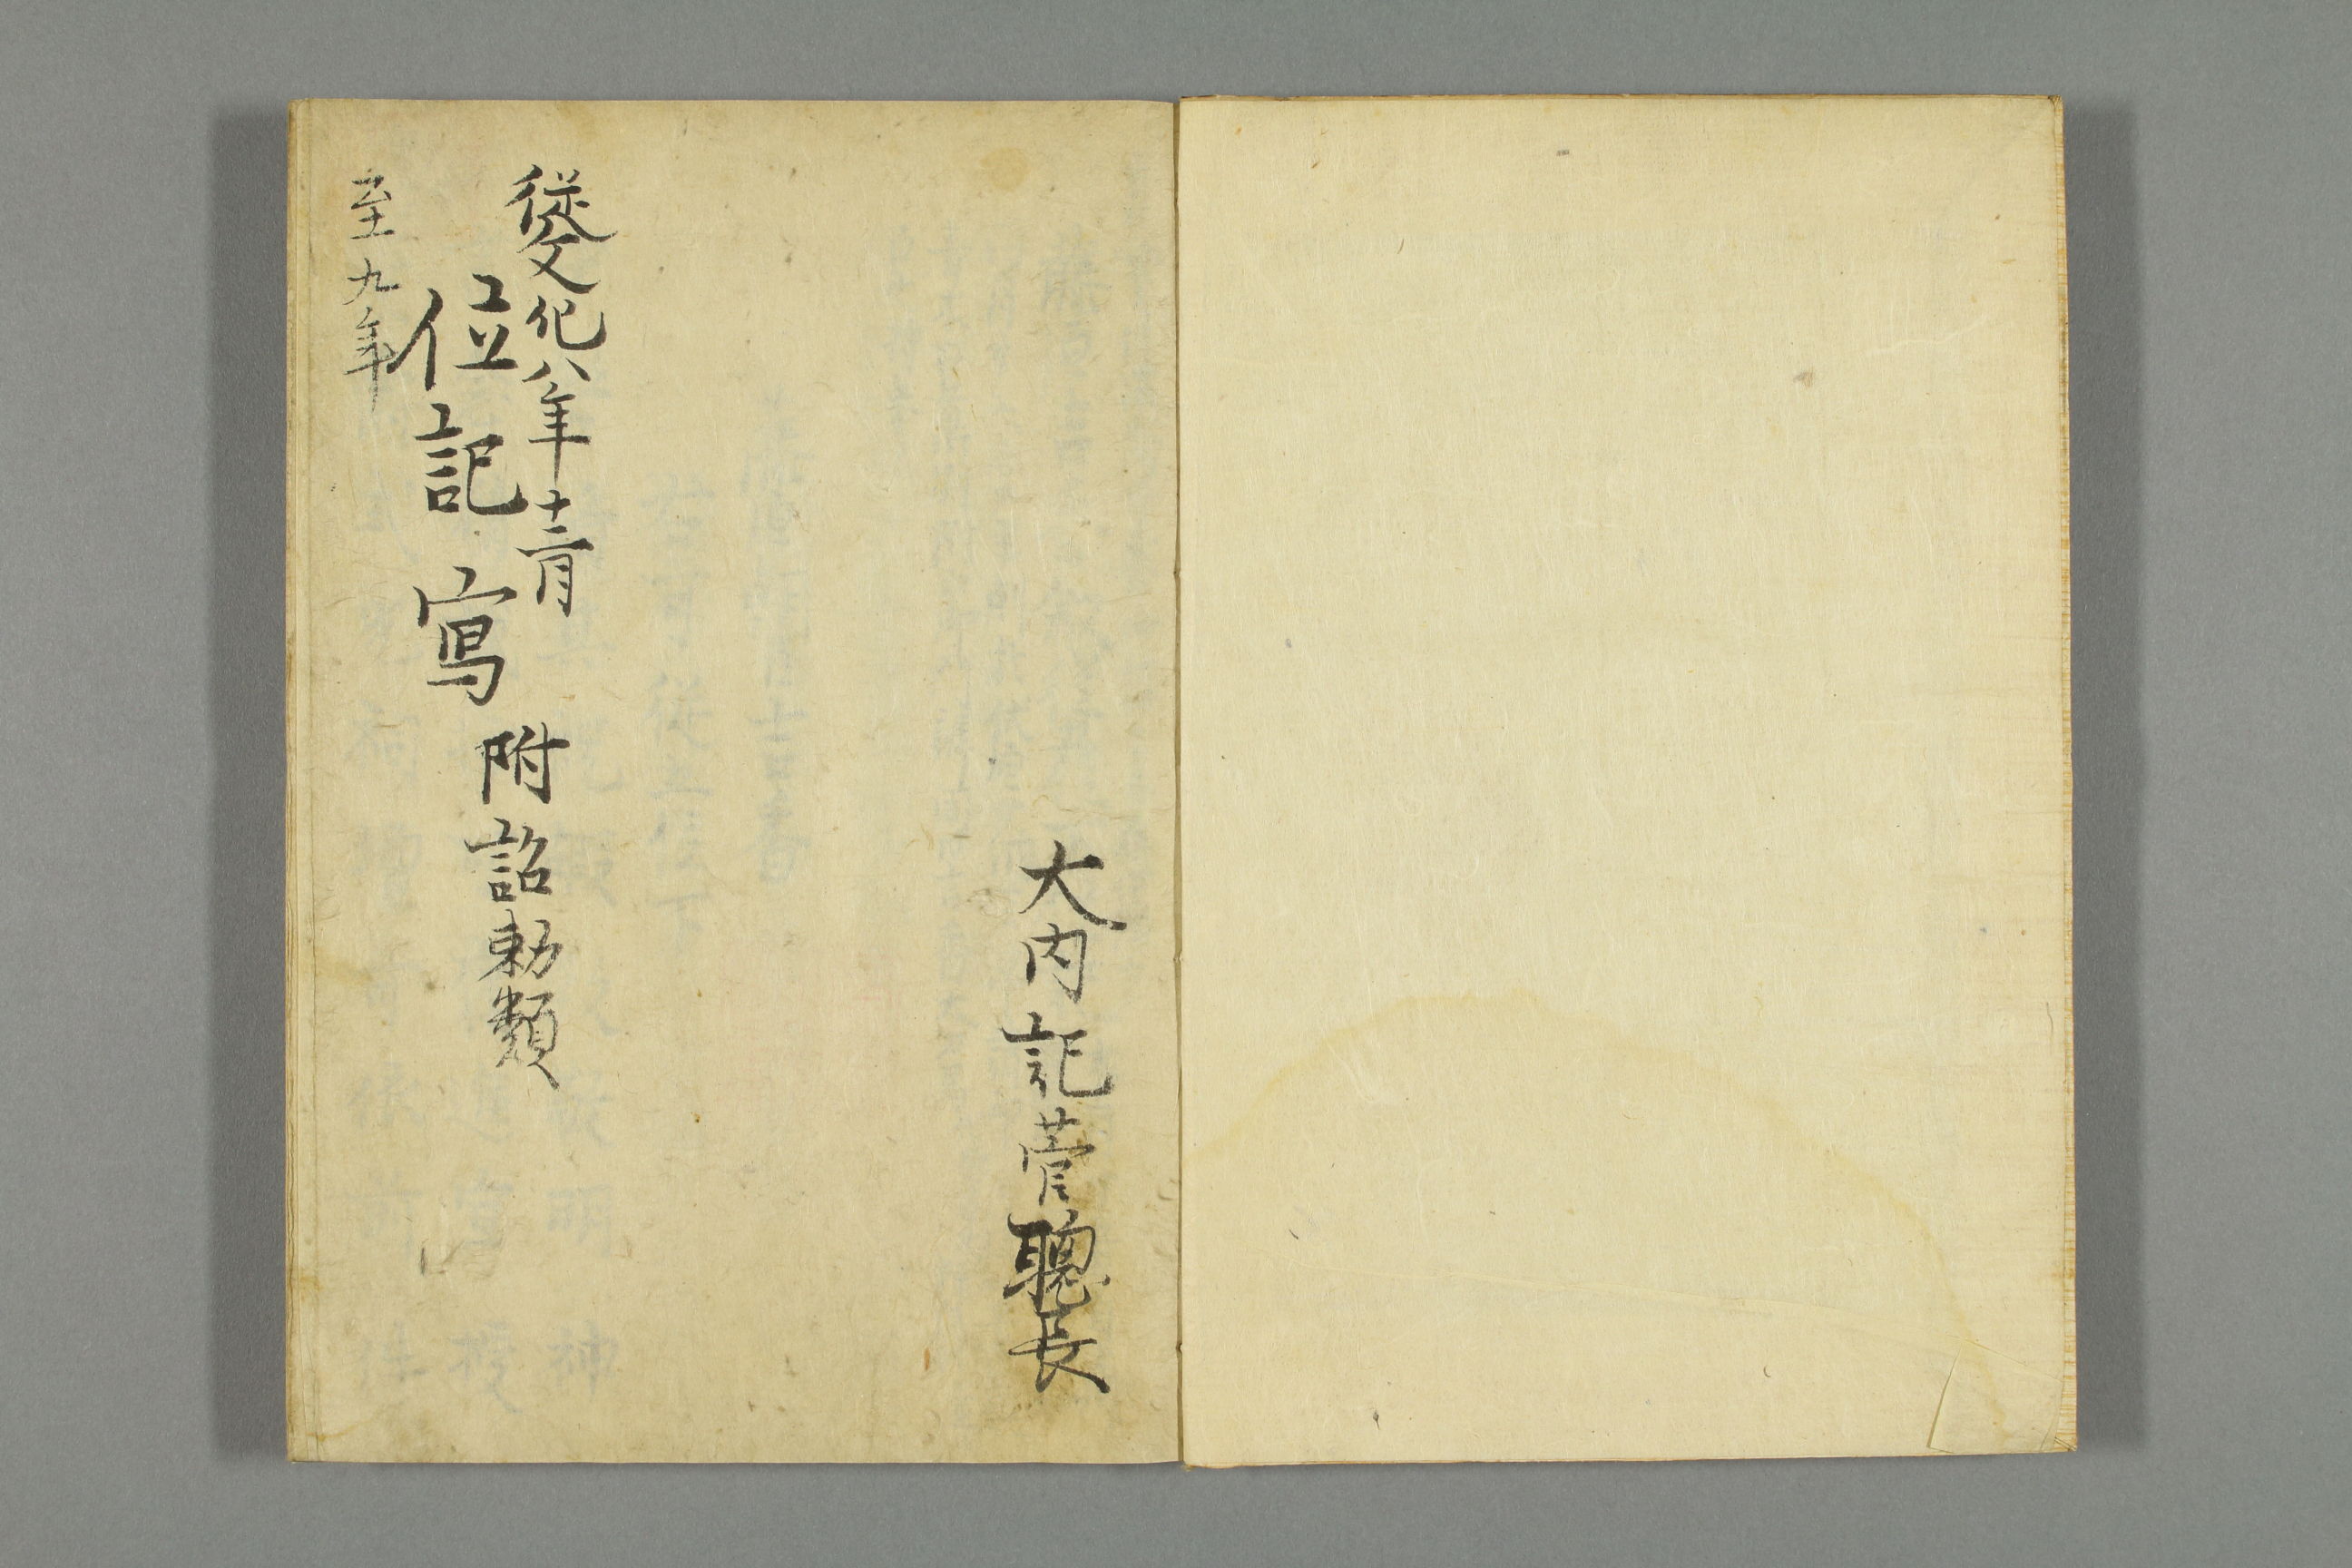 大内記菅聰長
從文化八年十二月
位記寫 附詔勅類
至九年